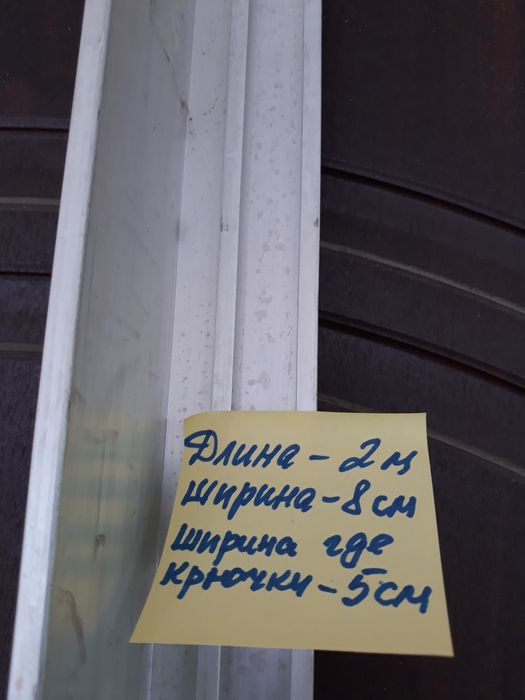 Длина - 2 м
ширина - 8 см
ширина где
крючки - 5 см